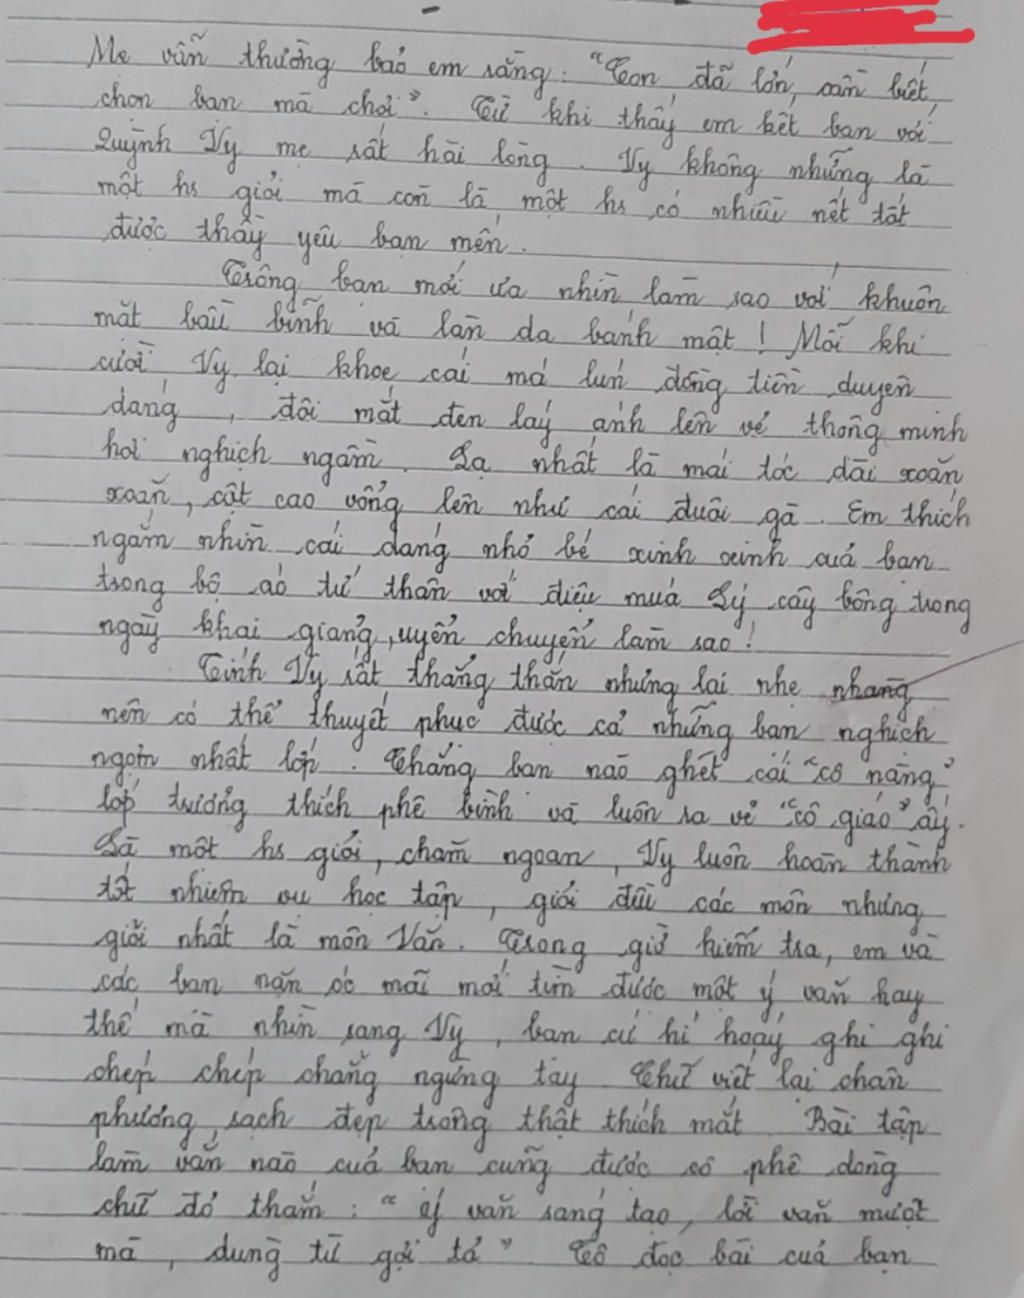 Mẹ vẫn thường bảo em rằng: "Con đã lớn, cần biết
chọn bạn mà chơi". Từ khi thấy em kết bạn với
Quỳnh Vy mẹ rất hài lòng. Vy không những là
một hs giỏi mà còn là một hs có nhiều nét tốt
được thầy yêu bạn mến.
Trông bạn mới ưa nhìn làm sao với khuôn
mặt bầu bĩnh và làn da bánh mật! Mỗi khi
cười Vy lại khoe cái má lún đồng tiền duyên
dáng, đôi mắt đen láy ánh lên vẻ thông minh
hơi nghịch ngầm. Lạ nhất là mái tóc dài xoăn
xoăn, cột cao vổng lên như cái đuôi gà. Em thích
ngắm nhìn cái dáng nhỏ bé xinh xinh của bạn
trong bộ áo tứ thân với điệu múa Lý cây bông trong
ngày khai giảng, uyển chuyển làm sao!
Tính Vy rất thẳng thắn nhưng lại nhẹ nhàng
nên có thể thuyết phục được cả những bạn nghịch
ngợm nhất lớp. Chẳng bạn nào ghét cái "cô nàng"
lớp trưởng thích phê bình và luôn ra vẻ "cô giáo" ấy.
Là một hs giỏi, chăm ngoan, Vy luôn hoàn thành
tốt nhiệm vụ học tập, giỏi đều các môn nhưng
giỏi nhất là môn Văn. Trong giờ kiểm tra, em và
các bạn nặn óc mãi mới tìm được một ý văn hay
thế mà nhìn sang Vy, bạn cứ hí hoáy ghi ghi
chép chép chẳng ngừng tay Chữ viết lại chân
phương, sạch đẹp trông thật thích mắt Bài tập
làm văn nào của bạn cũng được cô phê dòng
chữ đỏ thắm: "Ý văn sáng tạo, lời văn mượt
mà, dùng từ gợi tả" Cô đọc bài của bạn